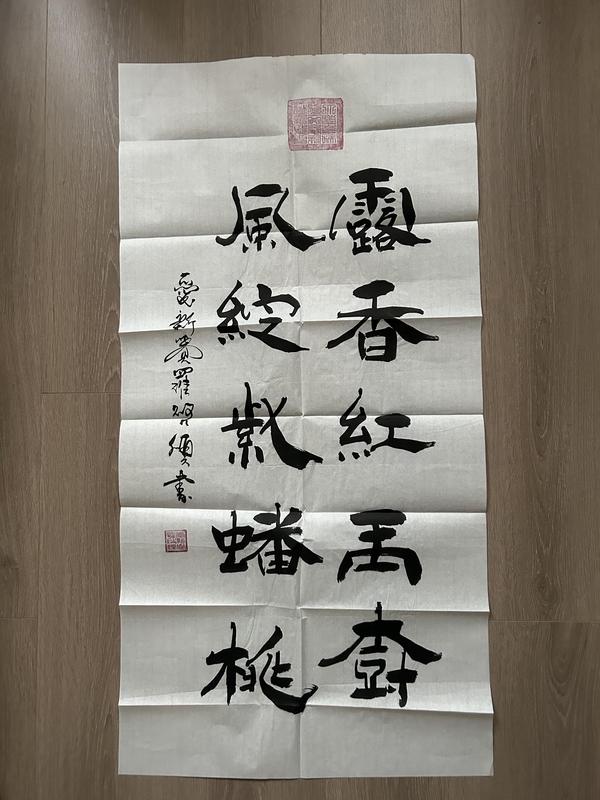 露香紅玉樹
風綻紫蟠桃
愛新覺羅啓儇書